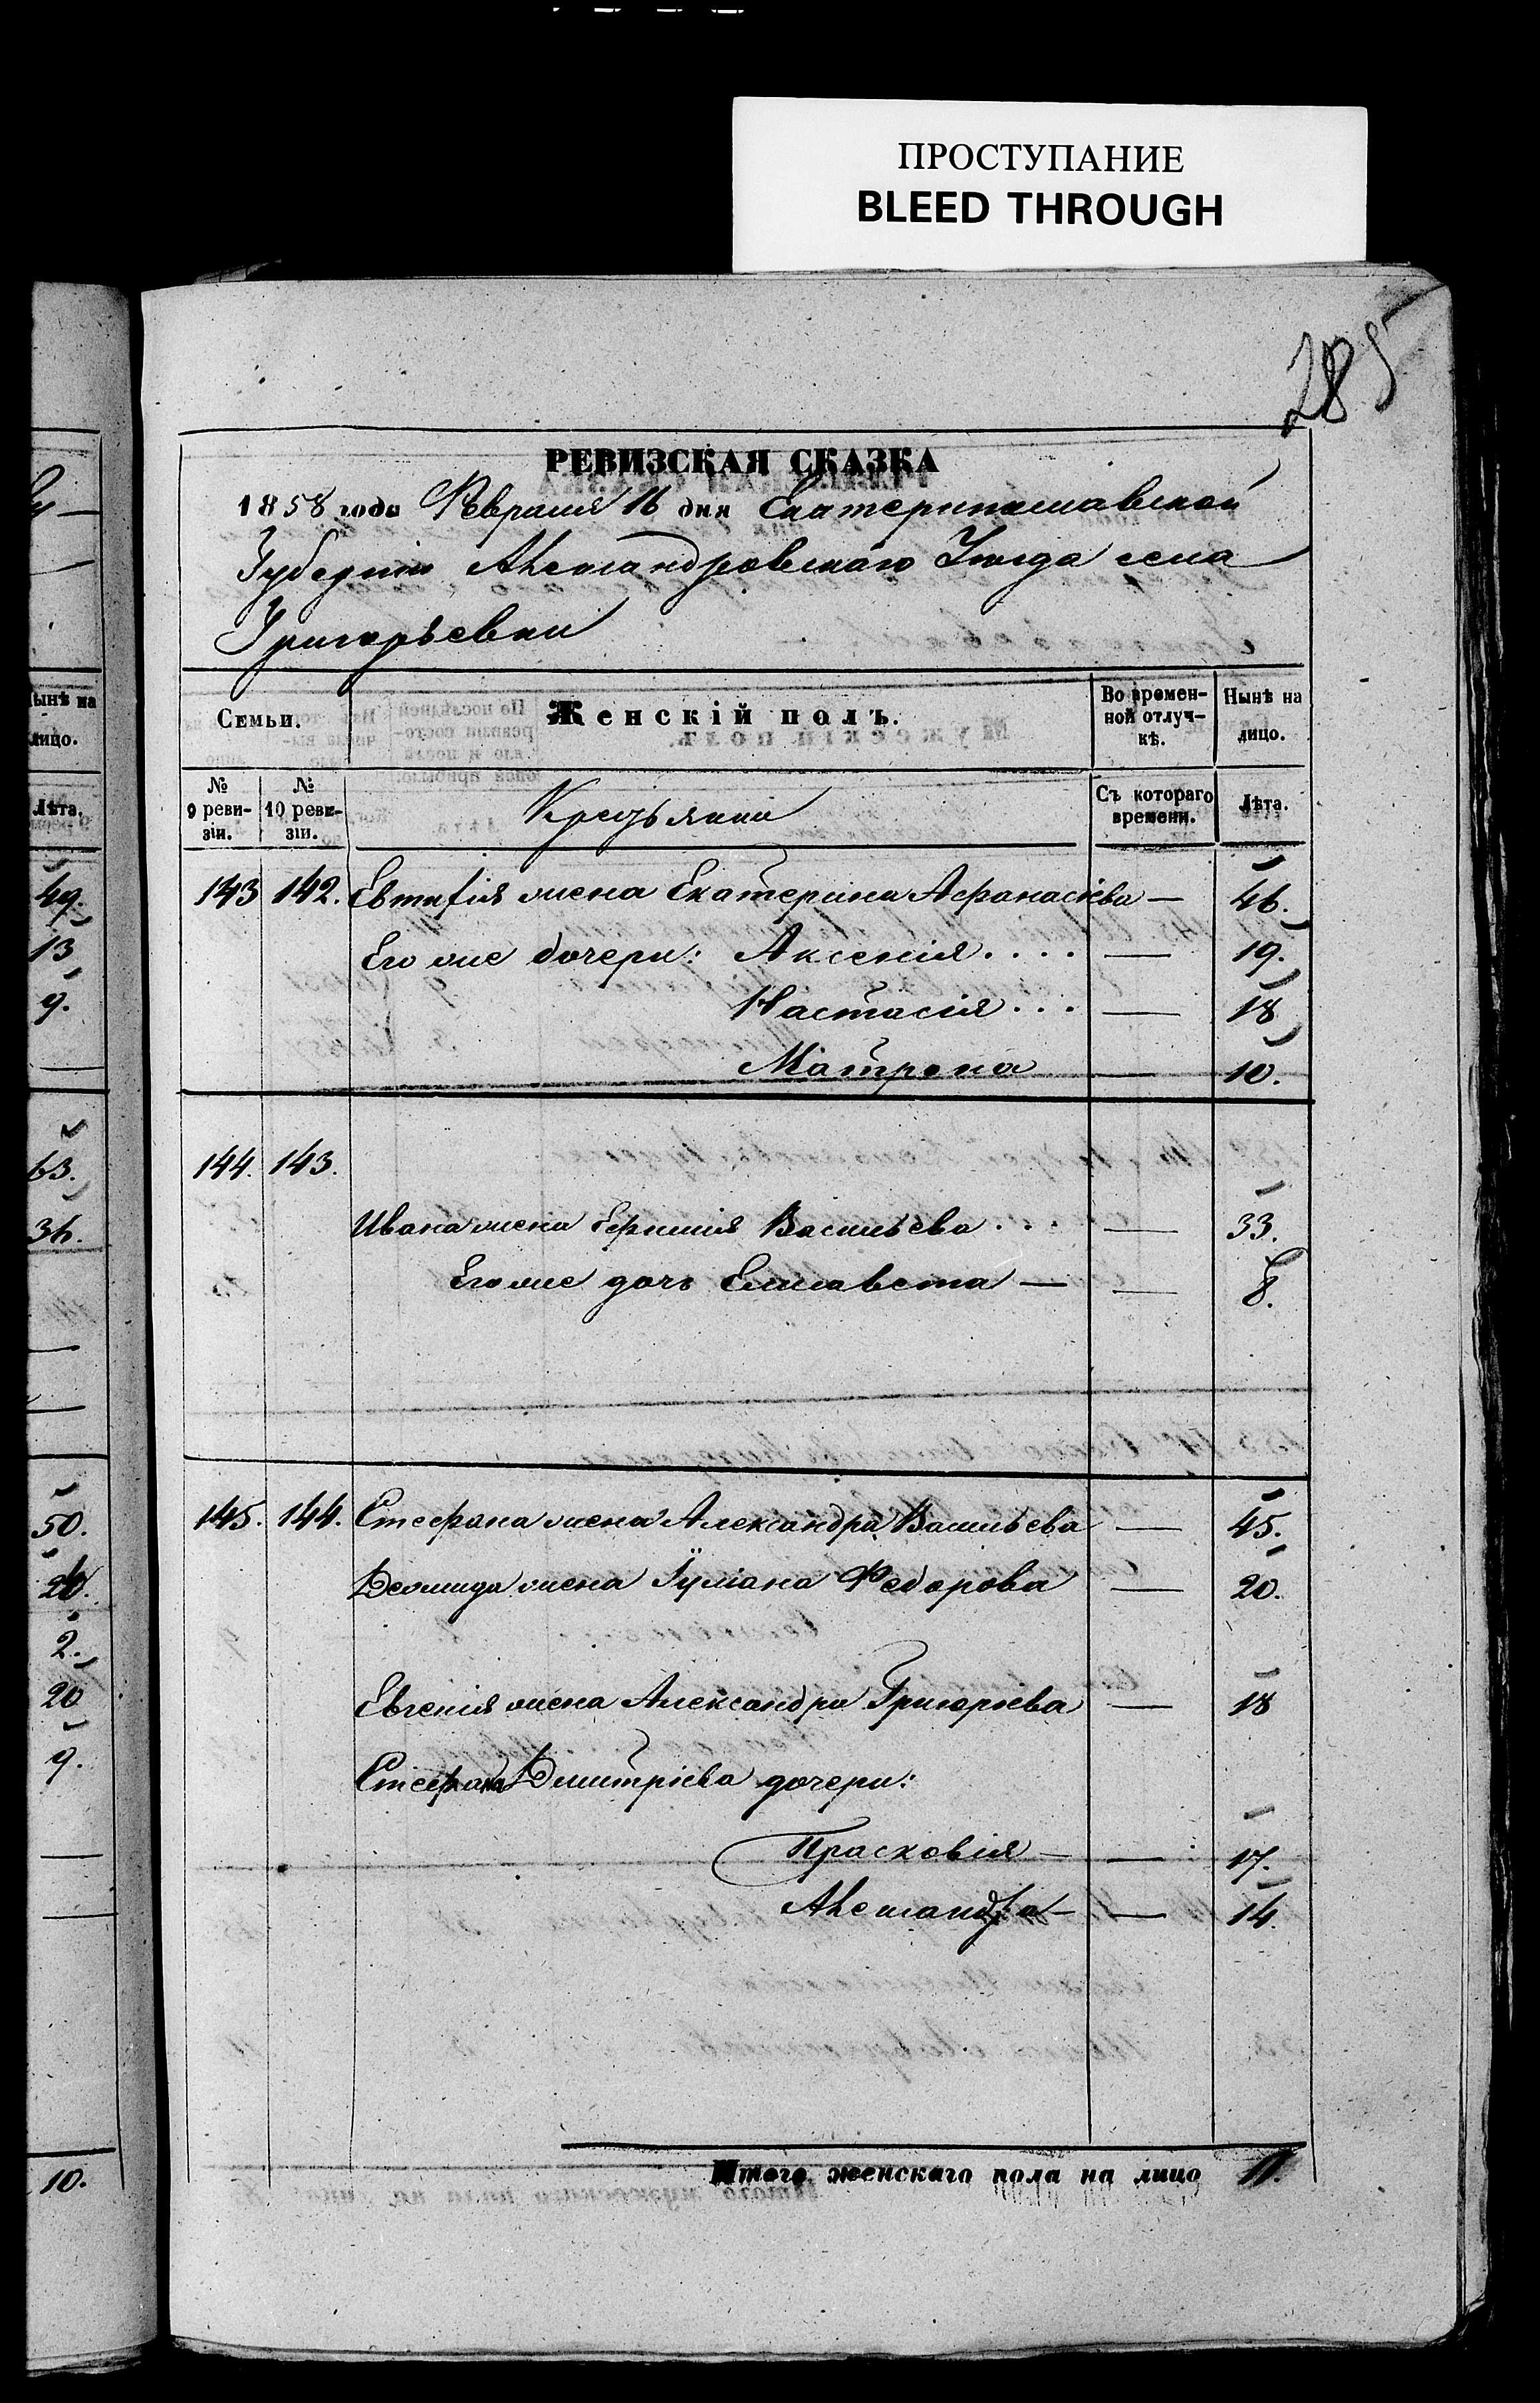 ПРОСТУПАНИЕ
BLEED THROUGH
285
РЕВИЗСКАЯ СКАЗКА
1858 года Февраля 16 дня Екатеринославской
Губернии Александровскаго Уѣзда села
Григорьевки
Семьи.
Женскій полъ.
Во времен-
ной отлуч-
кѣ.
Нынѣ на
лицо.
№
9 реви-
зіи.
№
10 реви-
зіи.
Крестьяни
Съ котораго
времени.
Лѣта.
143 142. Евтифія жена Екатерина Афанасіева — 46.
Его же дочери: Аксенія.... — 19.
Настасія... — 18
Матрена — 10.
144. 143.
Ивана жена Васильева... — 33.
Его же дочь Елисавета — — 8.
145. 144. Стефана жена Александра Васильева — 45.
Деомида жена Іуліана Федорова — 20.
Евгенія жена Александра Григоріева — 18
Стефана Дмитріева дочери:
Прасковія — — 17.
Александра — — 14
Итого женскаго пола на лицо 11.
ынѣ на
лицо.
Лѣта.
49.
13
9.
63.
36.
50.
20.
2.
20
9.
10.